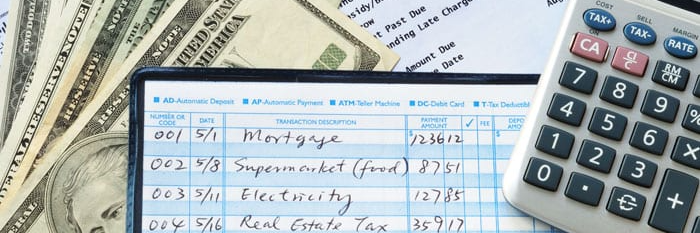 UNITED STATES
RESERVE NOTE
sidy/
ow
st Past Due
nding Late Charge
Amount Due
e Date
AD-Automatic Deposit AP-Automatic Payment ATM-Teller Machine DC-Debit Card T-Tax Deductibl
NUMBER OR CODE DATE TRANSACTION DESCRIPTION PAYMENT AMOUNT ✓ FEE DEPO
001 5/1 Mortgage $1236 12
002 5/8 Supermarket (food) 87 51
003 5/11 Electricity 127 85
004 5/16 Real Estate Tax 359 17
COST SELL MARGIN
TAX+ TAX- RATE
ON
CA C/CE RM CM
7 8 9 %
4 5 6 ×
1 2 3
0 . € +